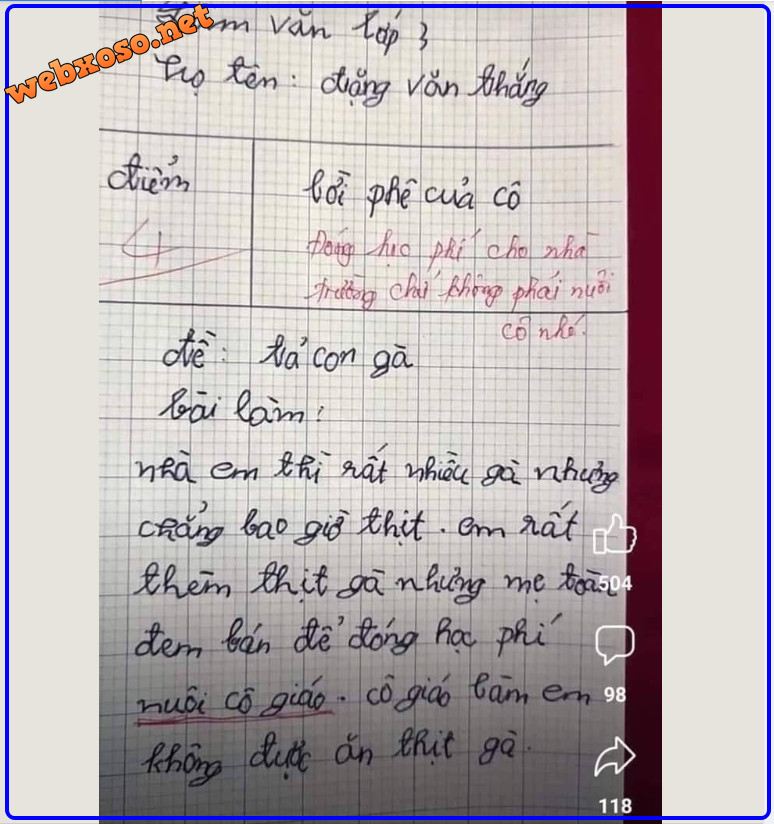 webxoso.net
văn lớp 3
Họ tên: đặng văn thắng
điểm
lời phê của cô
4
Đóng học phí cho nhà
trường chứ không phải nuôi
cô nhé.
đề: tả con gà
bài làm:
nhà em thì rất nhiều gà nhưng
chẳng bao giờ thịt. em rất
thèm thịt gà nhưng mẹ toàn
504
đem bán để đóng học phí
nuôi cô giáo. cô giáo làm em
98
không được ăn thịt gà.
118